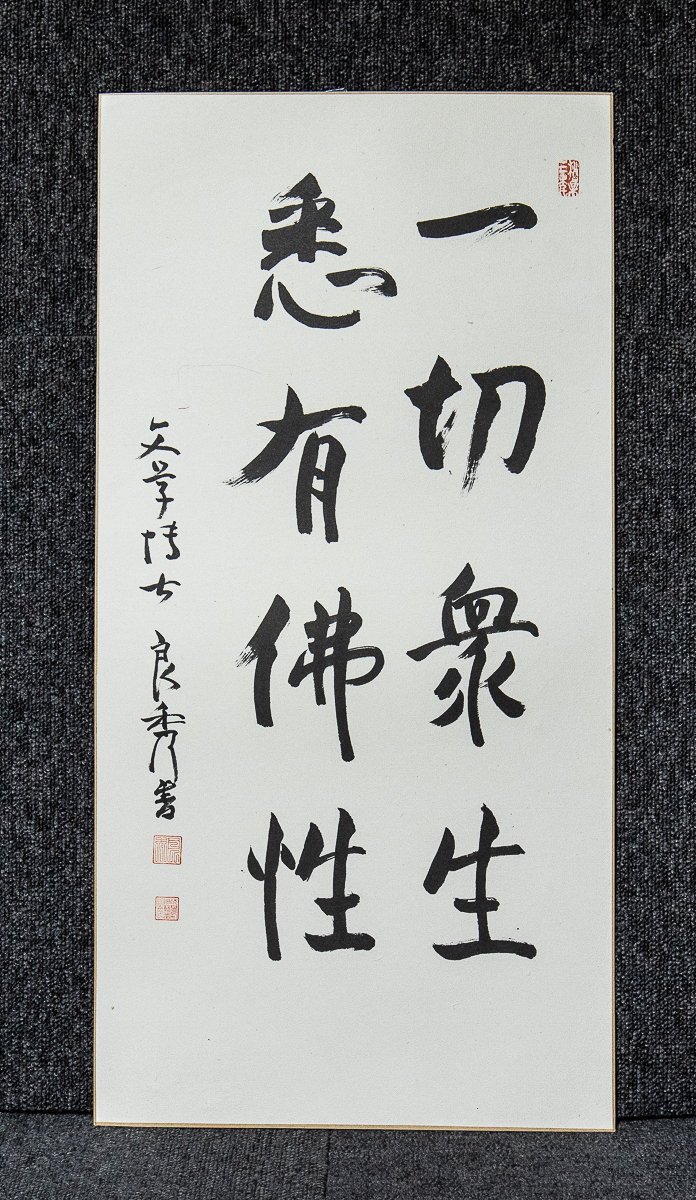 一切衆生
悉有佛性
文学博士 良秀書